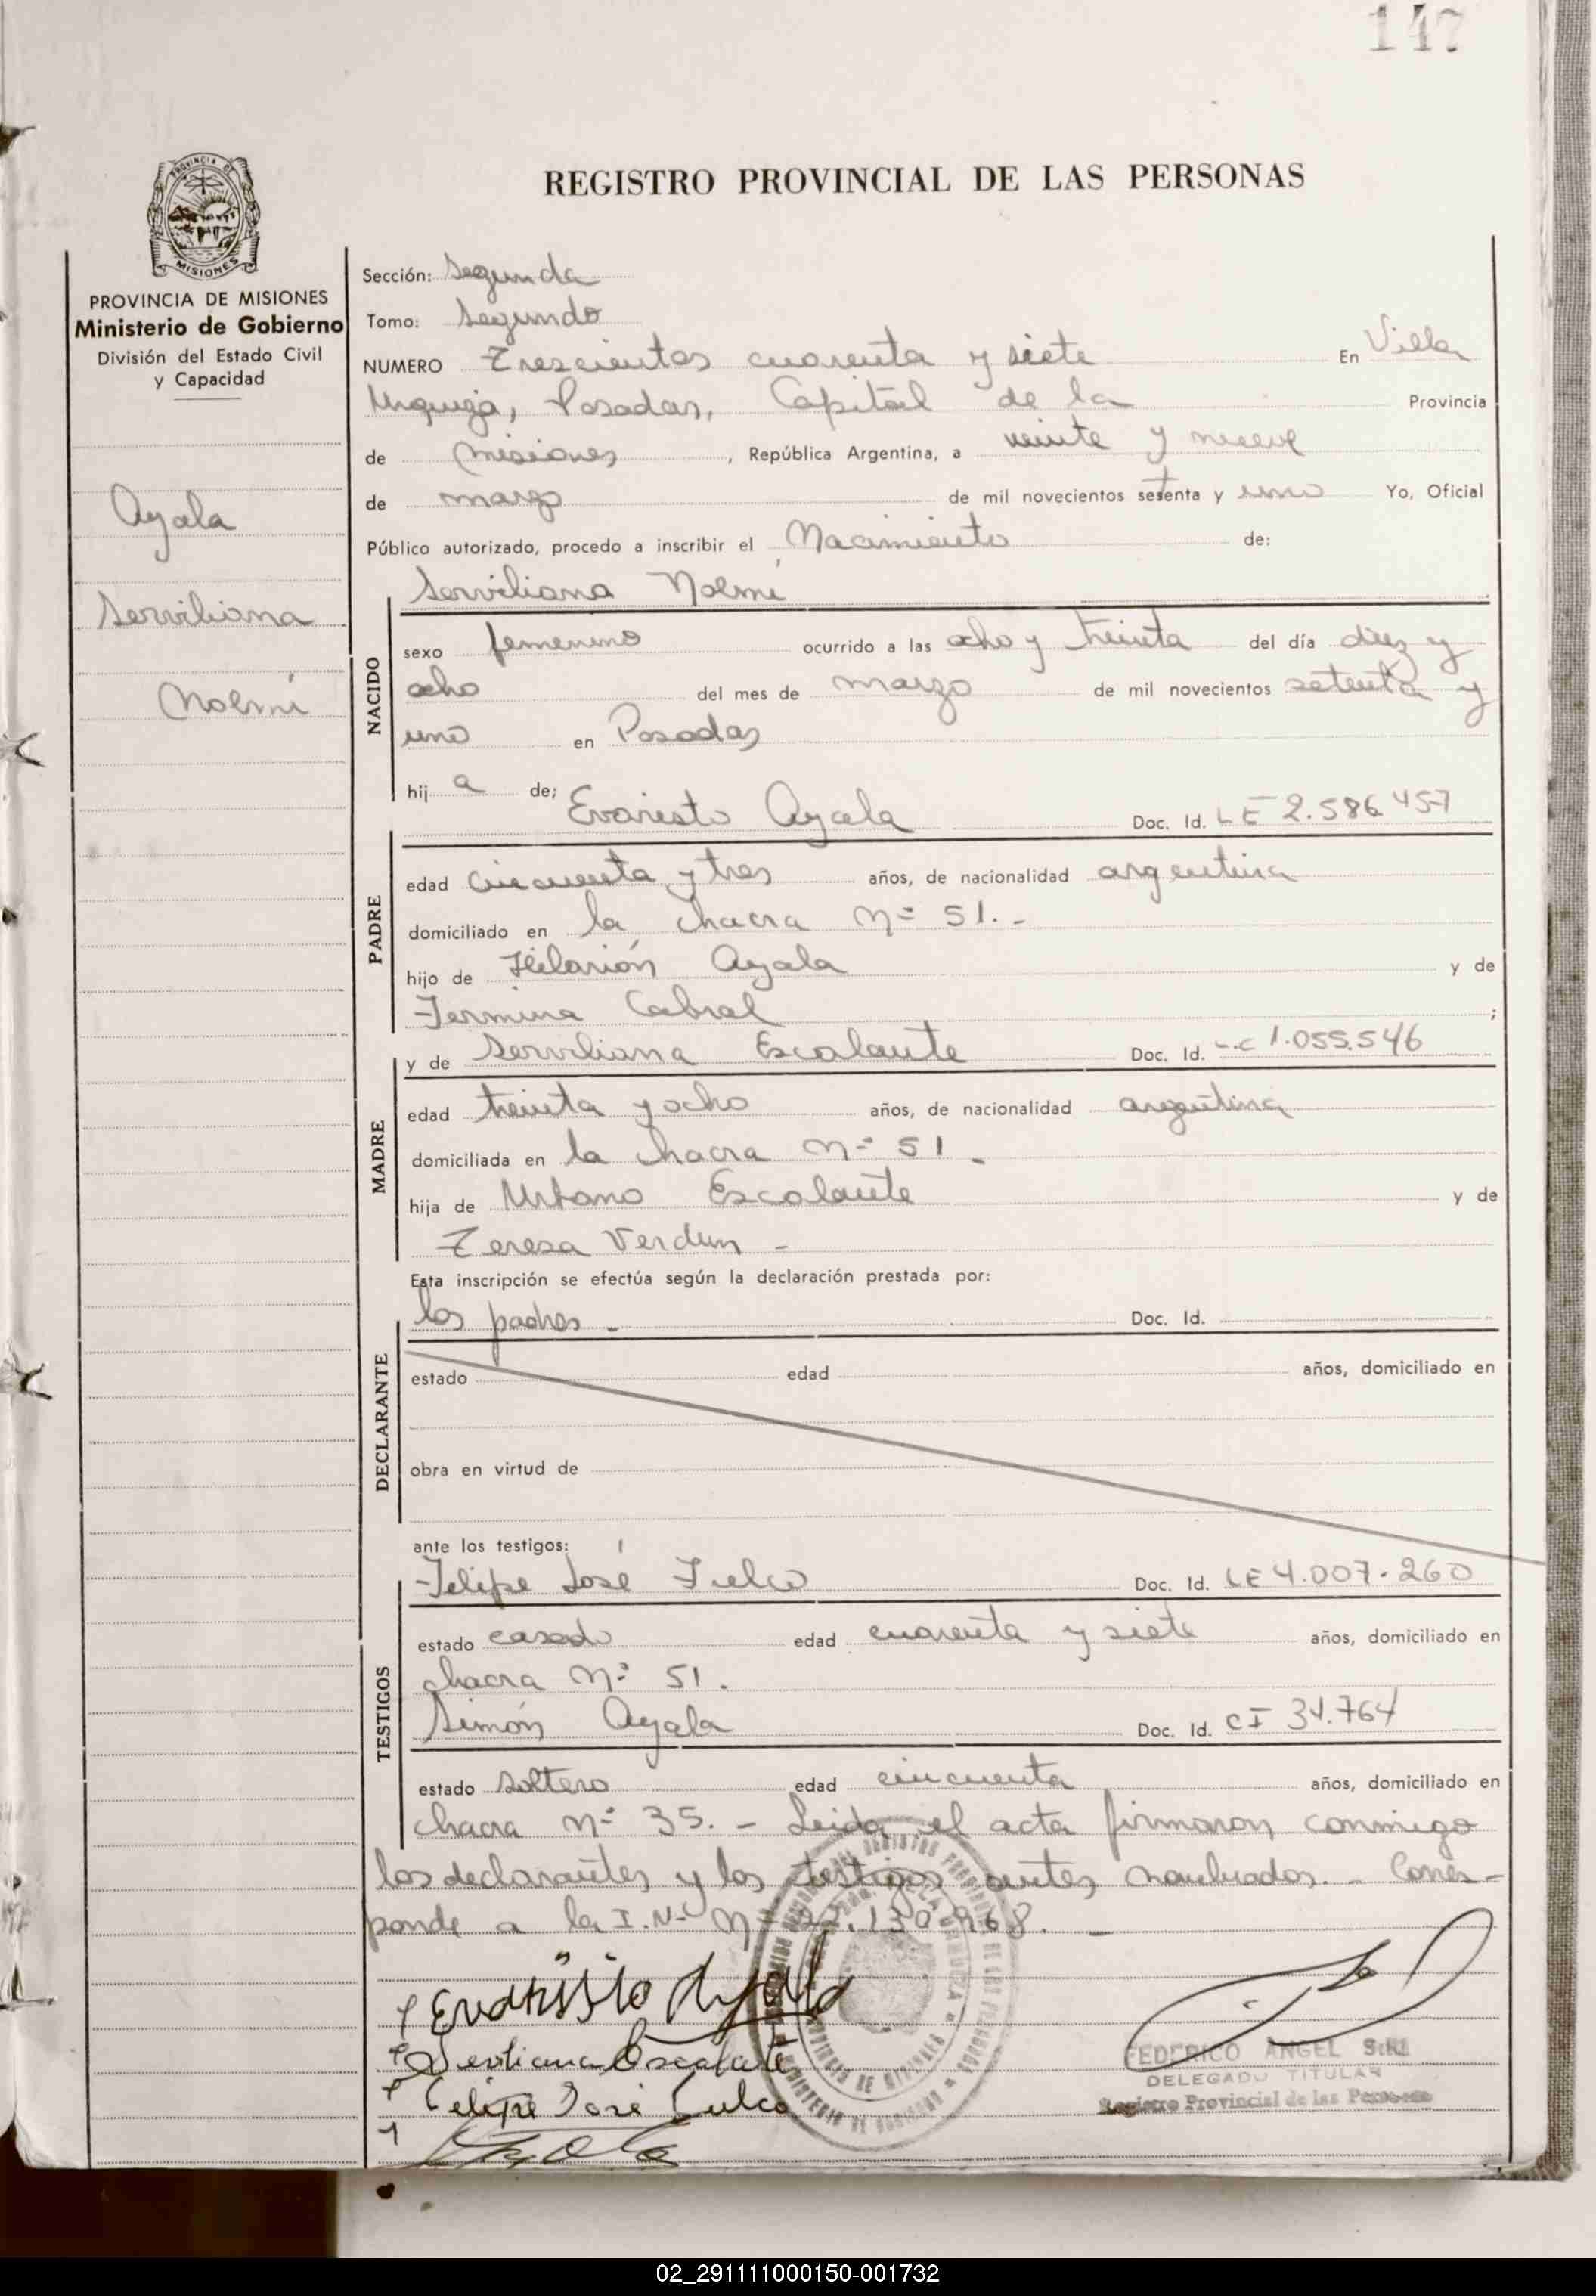 147
REGISTRO PROVINCIAL DE LAS PERSONAS
PROVINCIA DE
MISIONES
PROVINCIA DE MISIONES
Ministerio de Gobierno
División del Estado Civil
y Capacidad
Ayala
Serviliana
Noemí
Sección: Segunda
Tomo: Segundo
NUMERO Trescientos cuarenta y siete En Villa
Urquiza, Posadas, Capital de la Provincia
de Misiones, República Argentina, a veinte y nueve
de marzo de mil novecientos setenta y uno Yo, Oficial
Público autorizado, procedo a inscribir el Nacimiento de:
Serviliana Noemí
NACIDO
sexo femenino ocurrido a las ocho y treinta del día diez y
ocho del mes de marzo de mil novecientos setenta y
uno en Posadas
hij a de; Evaristo Ayala Doc. Id. LE 2.586.457
PADRE
edad cincuenta y tres años, de nacionalidad argentina
domiciliado en la chacra Nº 51.-
hijo de Hilarión Ayala y de
Fermina Cabral ;
y de Serviliana Escalante Doc. Id. L.C 1.055.546
MADRE
edad treinta y ocho años, de nacionalidad argentina
domiciliada en la chacra Nº 51.-
hija de Urbano Escalante y de
Teresa Verdun -
Esta inscripción se efectúa según la declaración prestada por:
los padres.- Doc. Id.
DECLARANTE
estado edad años, domiciliado en
obra en virtud de
ante los testigos:
Felipe José Fulco Doc. Id. LE 4.007.260
TESTIGOS
estado casado edad cuarenta y siete años, domiciliado en
chacra Nº 51.
Simón Ayala Doc. Id. CI 34.764
estado soltero edad cincuenta años, domiciliado en
chacra Nº 35. - Leida el acta firmaron conmigo
los declarantes y los testigos antes nombrados.- Corres-
ponde a la I.N. Nº 22.130.968. -
Evaristo Ayala
Serviliana Escalante
Felipe José Fulco
Ayala
FEDERICO ANGEL
DELEGADO TITULAR
Registro Provincial de las Personas
02_291111000150-001732